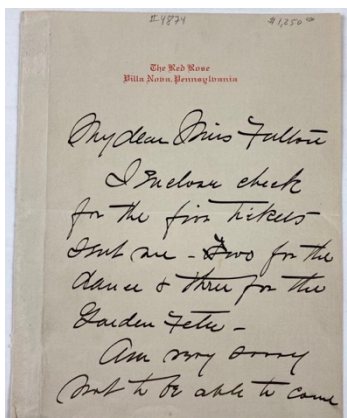 #4874 $1,250.00
The Red Rose
Villa Nova, Pennsylvania
My dear Miss Fullton
I Enclose check
for the five tickets
sent me - Two for the
dance & three for the
Garden Fete -
Am very sorry
not to be able to come